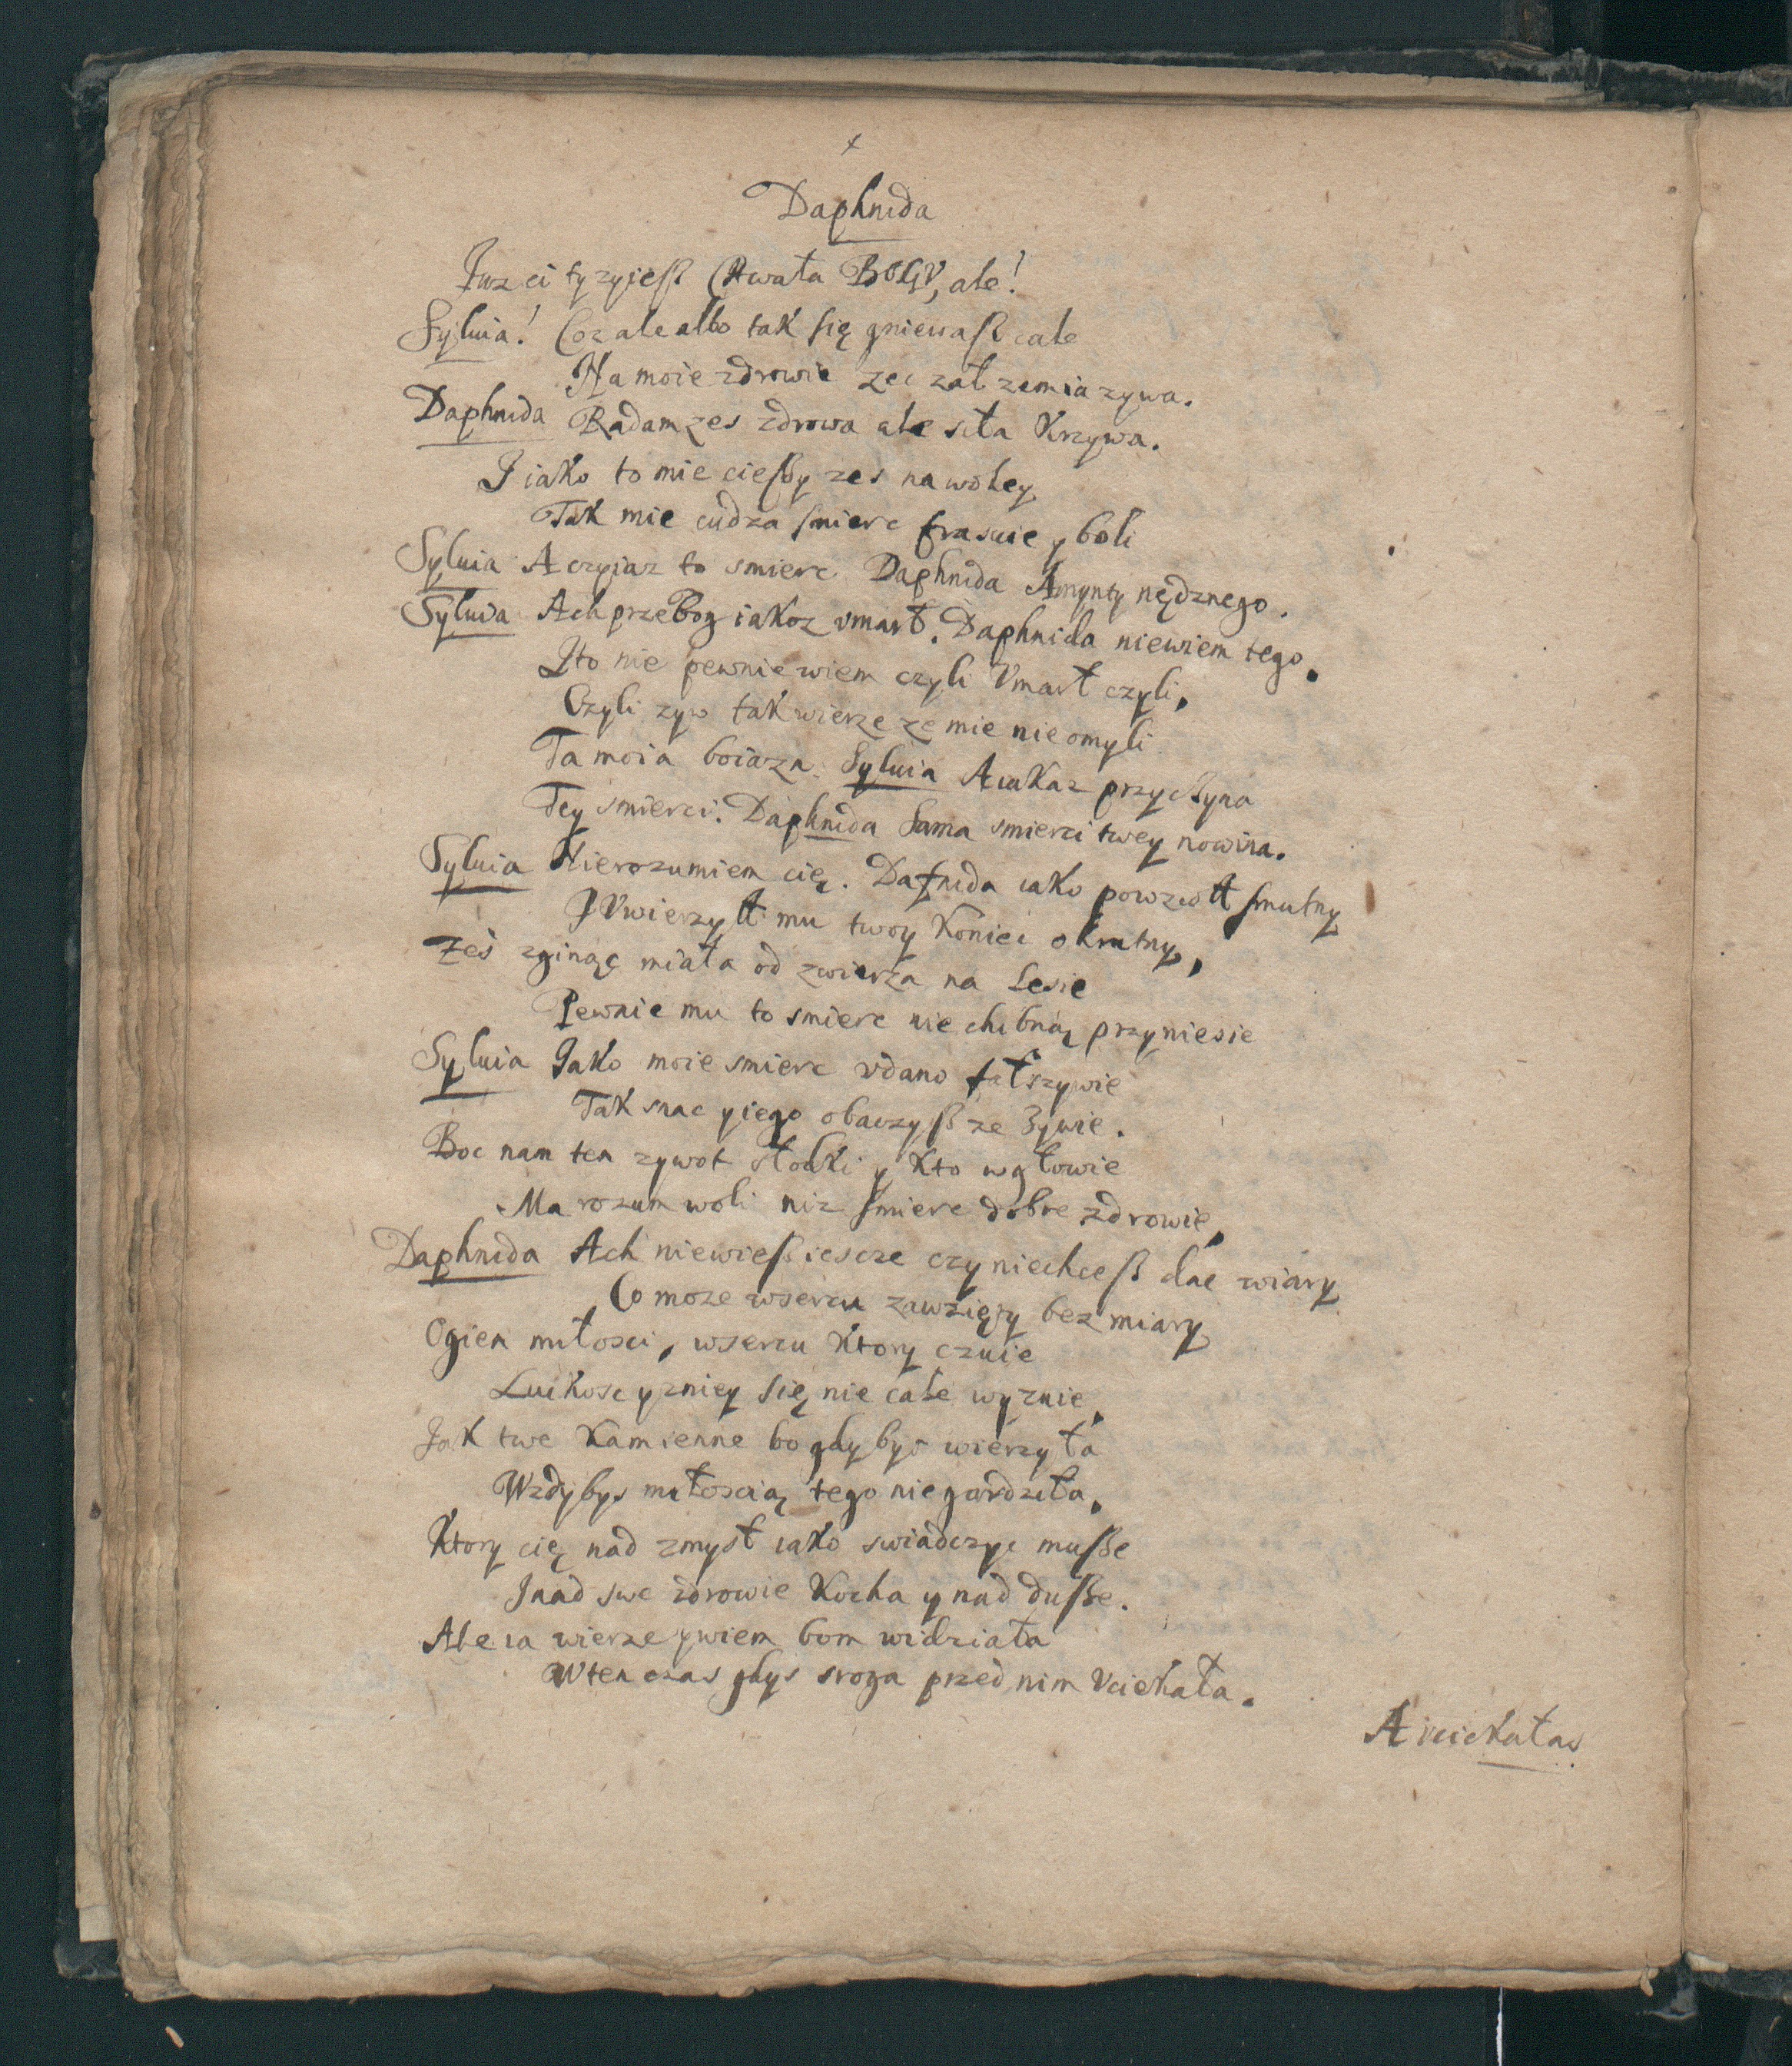 Daphnida
Iuz ci ty zyjesz Chwała BOGV, ale!
Sylvia! Coz ale albo tak się gniewasz cale
Na moie zdrowie zec zal zemia zywa.
Daphnida Radam zes zdrowa ale siła Krzywa.
I iako to mie cieszy zes na woley
Tak mie cudza smierc frasuie y boli
Sylvia A czyiaz to smierc Daphnida Amynty nędznego.
Sylvia Ach przebog iakoz vmarł. Daphnida niewiem tego.
Ito nie pewnie wiem czyli Vmarł czyli,
Czyli zyw tak wierze ze mie nie omyli
Ta moia boiazn. Sylvia A iakaz przyczyna
Tey smierci. Daphnida Sama smierci twey nowina.
Sylvia Nierozumiem cię. Dafnida iako powział smutny
I Vwierzył mu twoy Koniec okrutny,
Zes zginąc miała od zwierza na Lesie
Pewnie mu to smierc nie chibną przyniesie
Sylvia Iako moie smierc vdano fałszywie
Tak snac y iego obaczysz ze Zywie.
Boc nam ten zywot słodki y Kto w głowie
Ma rozum woli niz smierc dobre zdrowie,
Daphnida Ach niewiesz iescze czy niechcesz dac wiary
Co moze wsercu zawzięty bez miary
Ogien miłosci, wsercu Ktory czuie
Ludkosc y zniey się nie cale wyzuie,
Jak twe Kamienne bo gdybys wierzyła
Wzdybys miłoscią tego niegardziła,
Ktory cię nad zmysł iako swiadczyc musze
I nad swe zdrowie Kocha y nad dusze.
Ale ia wierze y wiem bom widziała
Wten czas gdys sroga przed nim Vciekała.
A vciekałas